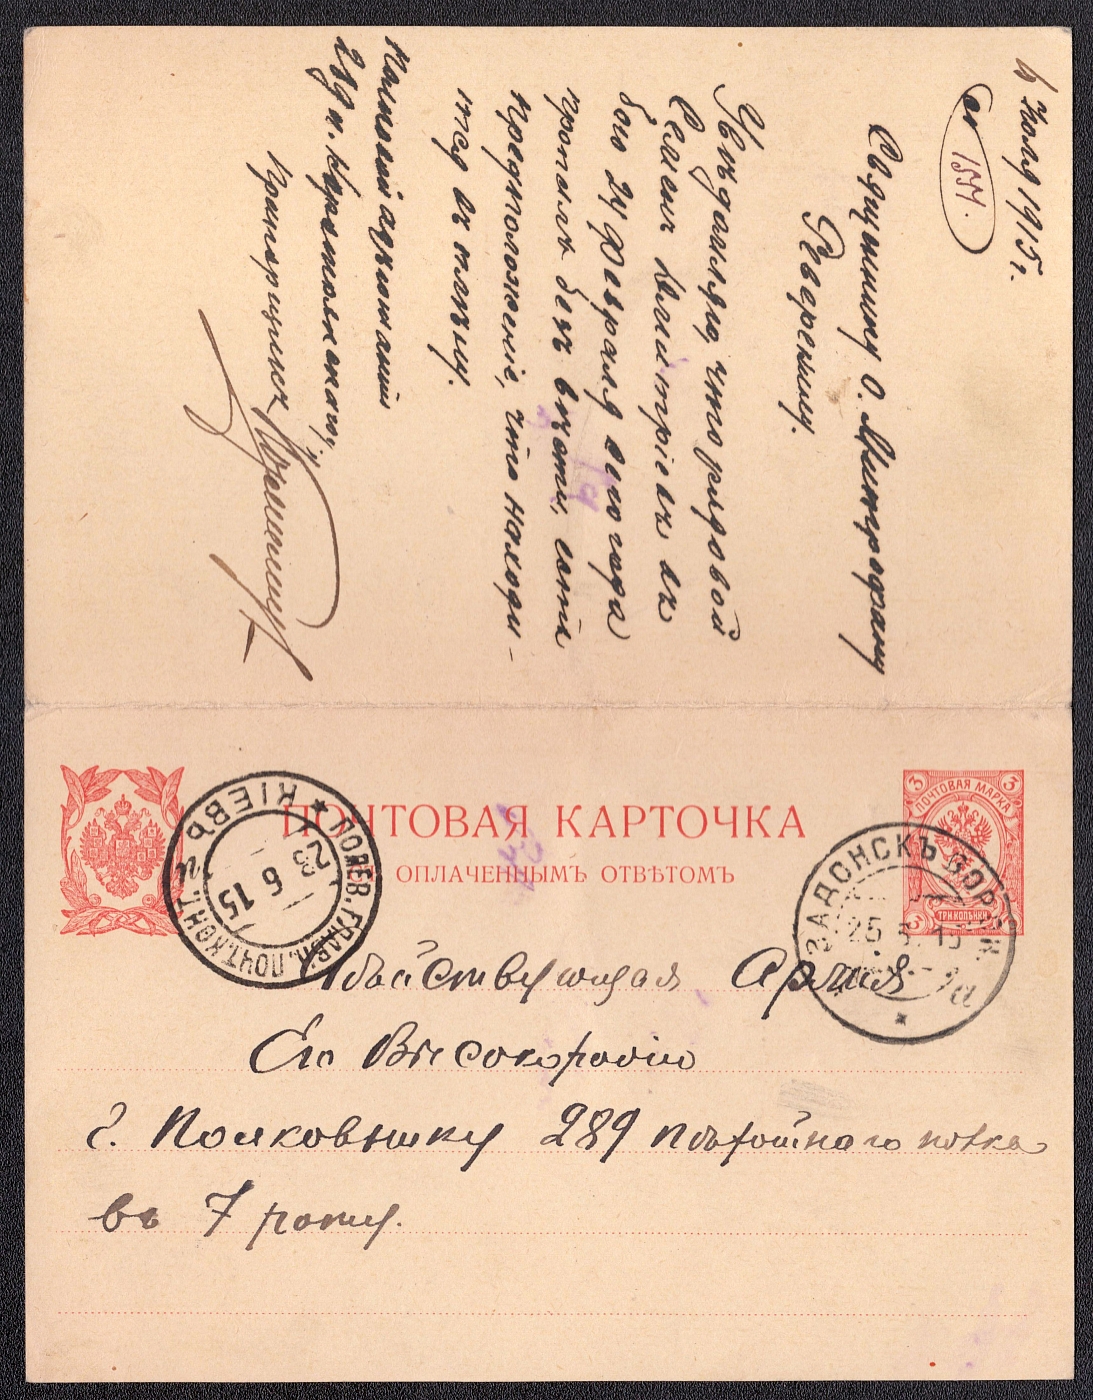 6 Юля 1915 г.
№ 1557.
Священнику О. Митрофану
Реверкину.
Увѣдомляю, что рядовой
Семенъ Дмитріевъ въ
бою 24 Февраля сего года
пропалъ безъ вѣсти, есть
предположеніе, что находи-
тся въ плѣну.
Полковой адъютантъ
289 п. Коротоякскаго,
Прапорщикъ
ПОЧТОВАЯ КАРТОЧКА
СЪ ОПЛАЧЕННЫМЪ ОТВѢТОМЪ
ПОЧТОВАЯ МАРКА
3 3
3
ТРИ КОПѢЙКИ
КІЕВЪ
ПОЛЕВ. ГЛАВН. ПОЧТ. КОНТ.
23 6 15
ЗАДОНСКЪ ВОРОН.
25 15
Дѣйствующая Армія
Его Высокородію
г. Полковнику 289 пѣхотнаго полка
въ 7 роту.